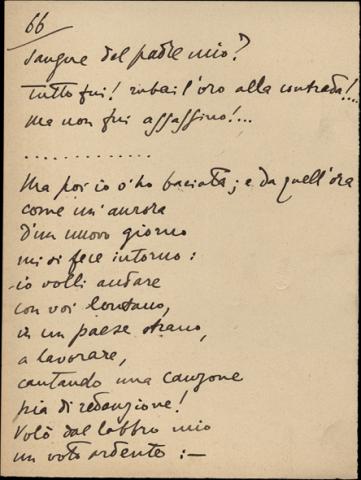 66
sangue del padre mio?
Tutto fui! rubai l'oro alla contrada!...
ma non fui assassino!...
. . . . . . . . . . . .
Ma poi io v'ho baciata; e da quell'ora
come un'aurora
d'un nuovo giorno
mi si fece intorno:
io volli andare
con voi lontano,
in un paese strano,
a lavorare,
cantando una canzone
pia di redenzione!
Volò dal labbro mio
un voto ardente: —